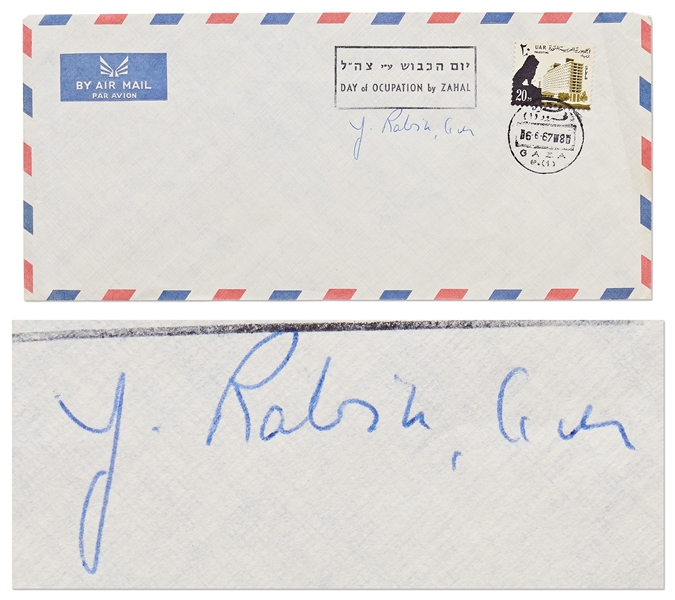 BY AIR MAIL
PAR AVION
יום הכבוש ע״י צה״ל
DAY of OCUPATION by ZAHAL
Y. Rabin, Gen
٢٠
UAR
PALESTINE
20 M
(١)
6-6-67
GAZA
P. (1)
Y. Rabin, Gen